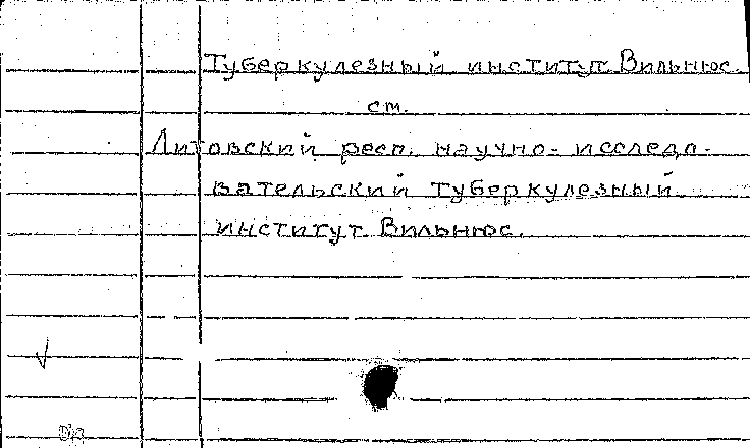 Туберкулезный институт. Вильнюс.
см.
Литовский респ. научно-исследо-
вательский туберкулезный
институт. Вильнюс.